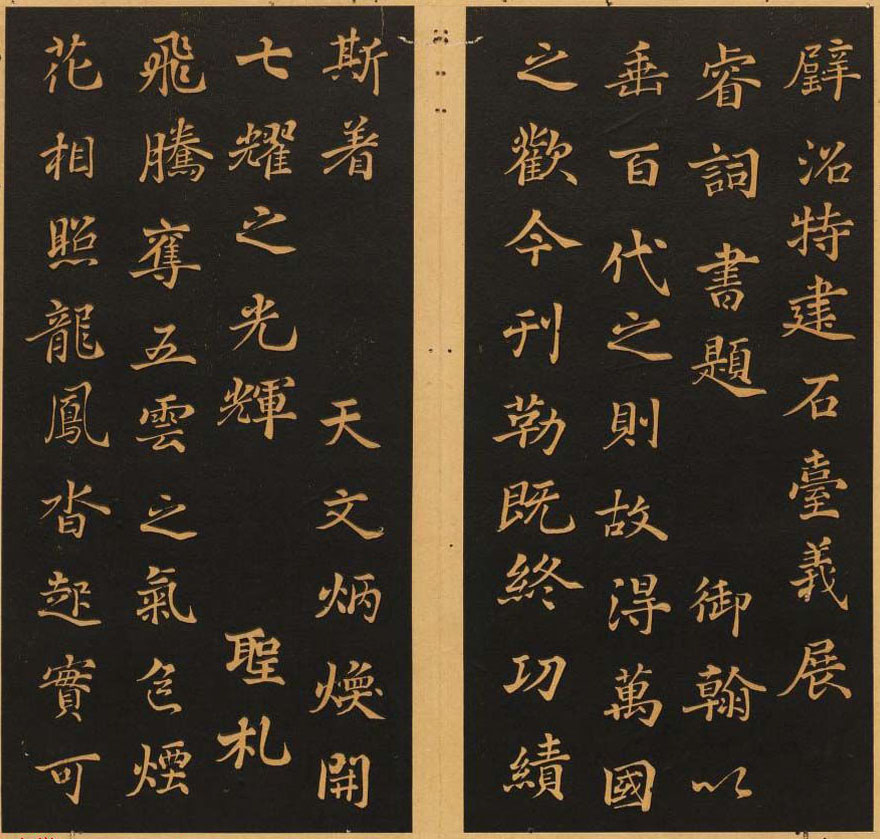 璧沼特建石臺義展
睿詞書題 御翰以
垂百代之則故得萬國
之歡今刊勒既終功績
斯着 天文炳煥開
七耀之光輝 聖札
飛騰奪五雲之氣色煙
花相照龍鳳沓起實可